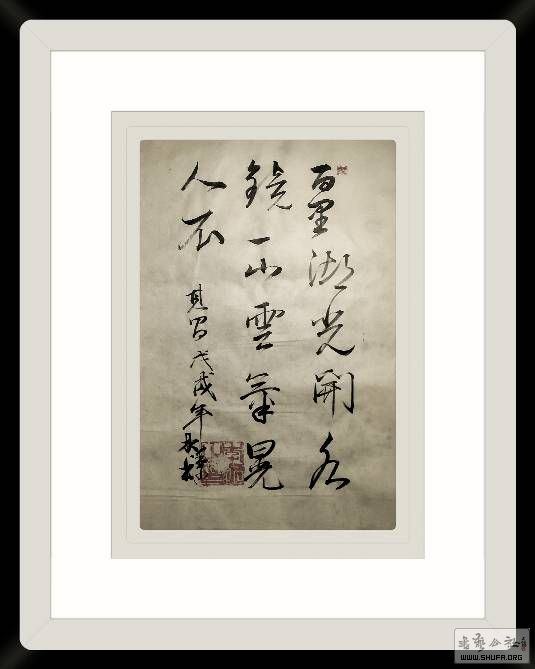 百里湖光開水
鏡一山雲氣晃
人衣
戊戌年
书艺公社
WWW.SHUFA.ORG